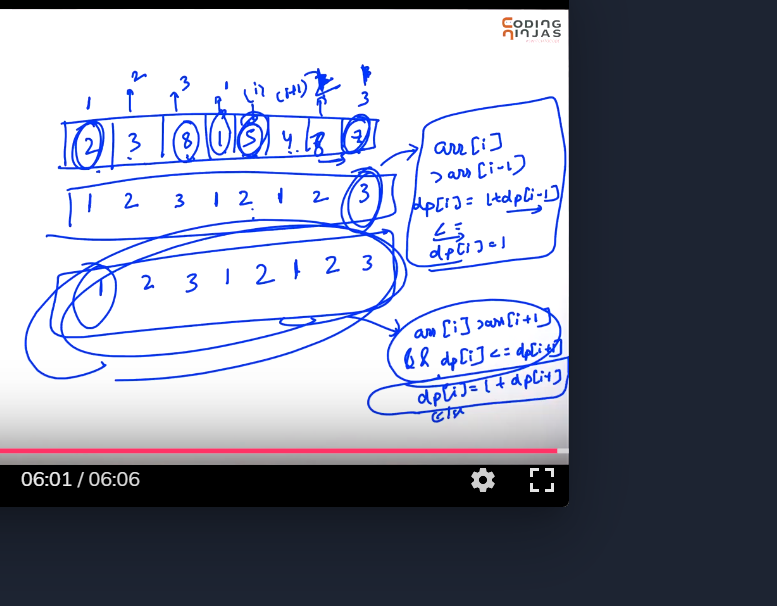 CODING
NINJAS
1 2 3 1 (i) (i+1) 3
2 3 8 1 5 4 8 7
1 2 3 1 2 1 2 3
1 2 3 1 2 1 2 3
arr[i]
>arr[i-1]
dp[i]= 1+dp[i-1]
<=
dp[i]=1
arr[i]>arr[i+1]
&& dp[i]<=dp[i+1]
dp[i]=1+dp[i+1]
06:01 / 06:06